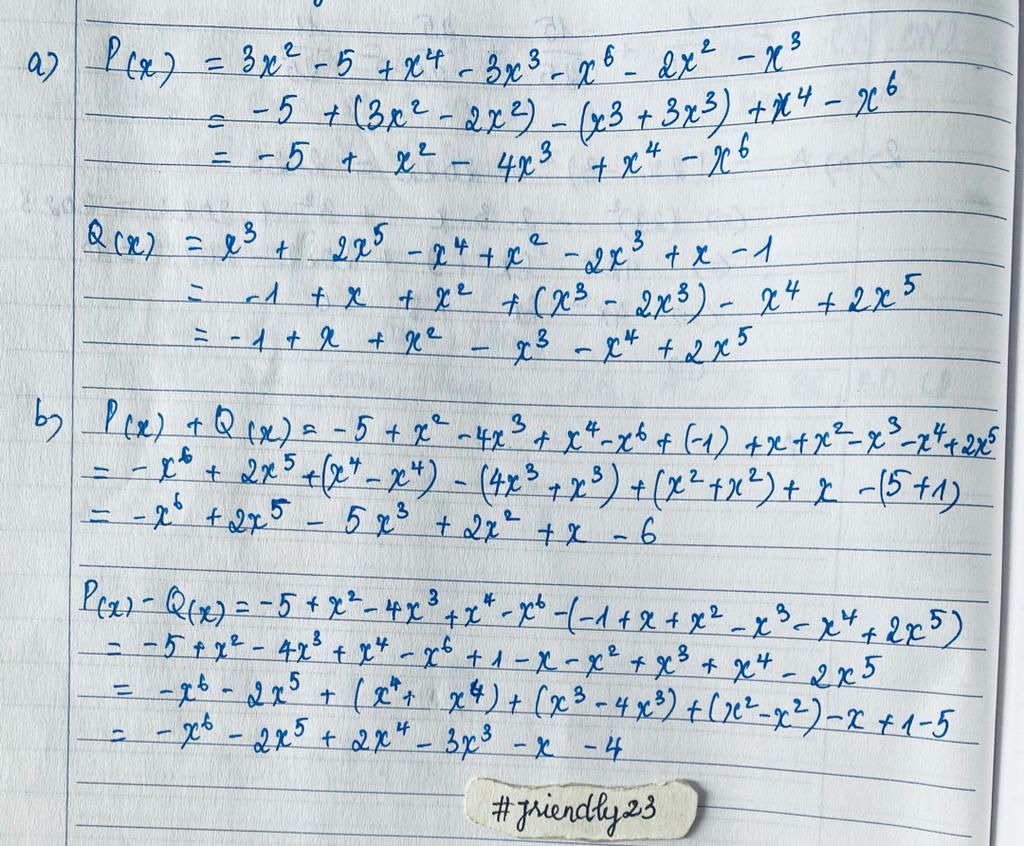 a) P(x) = 3x² - 5 + x⁴ - 3x³ - x⁶ - 2x² - x³
= -5 + (3x² - 2x²) - (x³ + 3x³) + x⁴ - x⁶
= -5 + x² - 4x³ + x⁴ - x⁶
Q(x) = x³ + 2x⁵ - x⁴ + x² - 2x³ + x - 1
= -1 + x + x² + (x³ - 2x³) - x⁴ + 2x⁵
= -1 + x + x² - x³ - x⁴ + 2x⁵
b) P(x) + Q(x) = -5 + x² - 4x³ + x⁴ - x⁶ + (-1) + x + x² - x³ - x⁴ + 2x⁵
= -x⁶ + 2x⁵ + (x⁴ - x⁴) - (4x³ + x³) + (x² + x²) + x - (5 + 1)
= -x⁶ + 2x⁵ - 5x³ + 2x² + x - 6
P(x) - Q(x) = -5 + x² - 4x³ + x⁴ - x⁶ - (-1 + x + x² - x³ - x⁴ + 2x⁵)
= -5 + x² - 4x³ + x⁴ - x⁶ + 1 - x - x² + x³ + x⁴ - 2x⁵
= -x⁶ - 2x⁵ + (x⁴ + x⁴) + (x³ - 4x³) + (x² - x²) - x + 1 - 5
= -x⁶ - 2x⁵ + 2x⁴ - 3x³ - x - 4
#friendly23